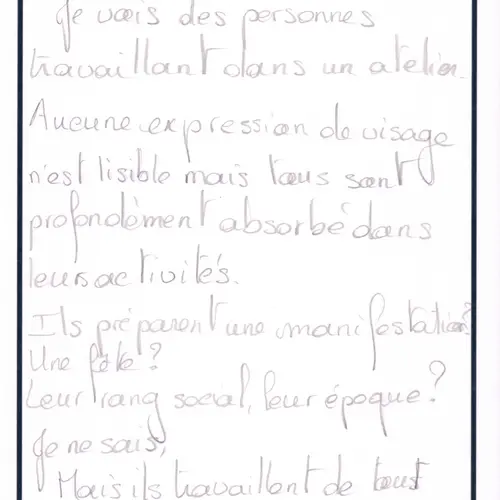 Je vois des personnes
travaillant dans un atelier.
Aucune expression de visage
n'est lisible mais tous sont
profondèment absorbé dans
leurs activités.
Ils préparent une manifestation?
Une fête?
Leur rang social, leur époque?
Je ne sais,
Mais ils travaillent de tout